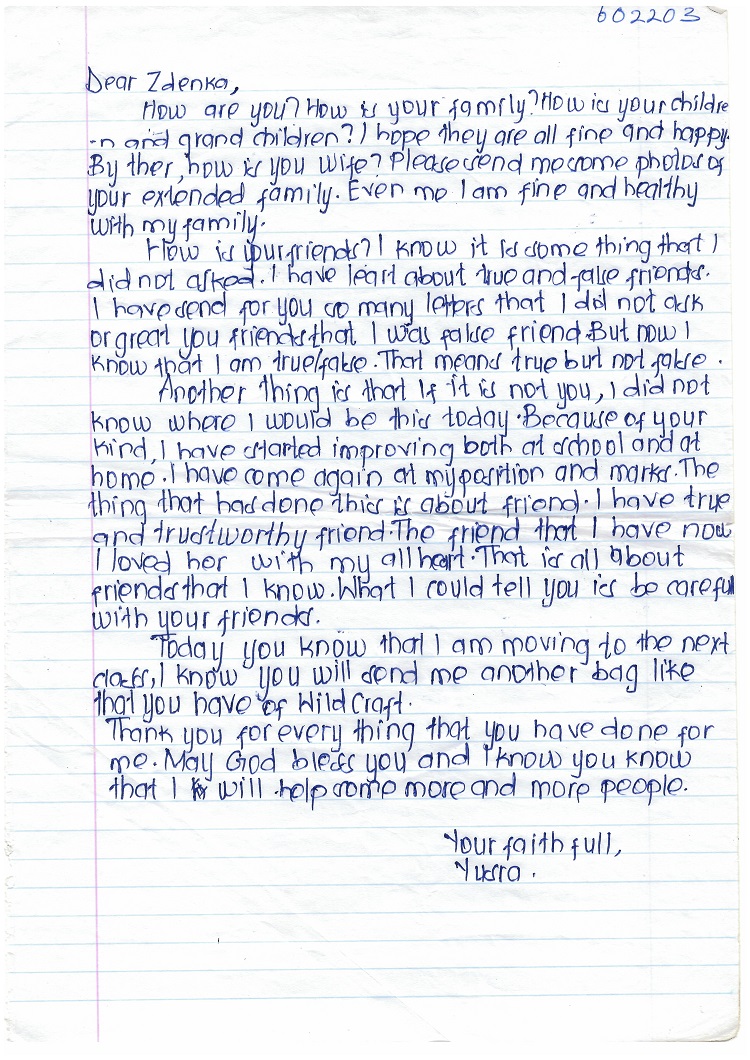 602203
Dear Zdenka,
How are you? How is your family? How is your childre
-n and grand children? I hope they are all fine and happy.
By ther, how is you wife? Please send me some photos of
your extended family. Even me I am fine and healthy
with my family.
How is your friends? I know it is some thing that I
did not asked. I have leart about true and false friends.
I have send for you so many letters that I did not ask
or great you friends that I was false friend. But now I
know that I am true/false. That means true but not false.
Another thing is that If it is not you, I did not
know where I would be this today. Because of your
kind, I have started improving both at school and at
home. I have come again at my position and marks. The
thing that has done this is about friend. I have true
and trustworthy friend. The friend that I have now
I loved her with my all heart. That is all about
friends that I know. What I could tell you is be carefull
with your friends.
Today you know that I am moving to the next
class, I know you will send me another bag like
that you have of Wild Craft.
Thank you for every thing that you have done for
me. May God bless you and I know you know
that I will help some more and more people.
Your faith full,
Yusra.